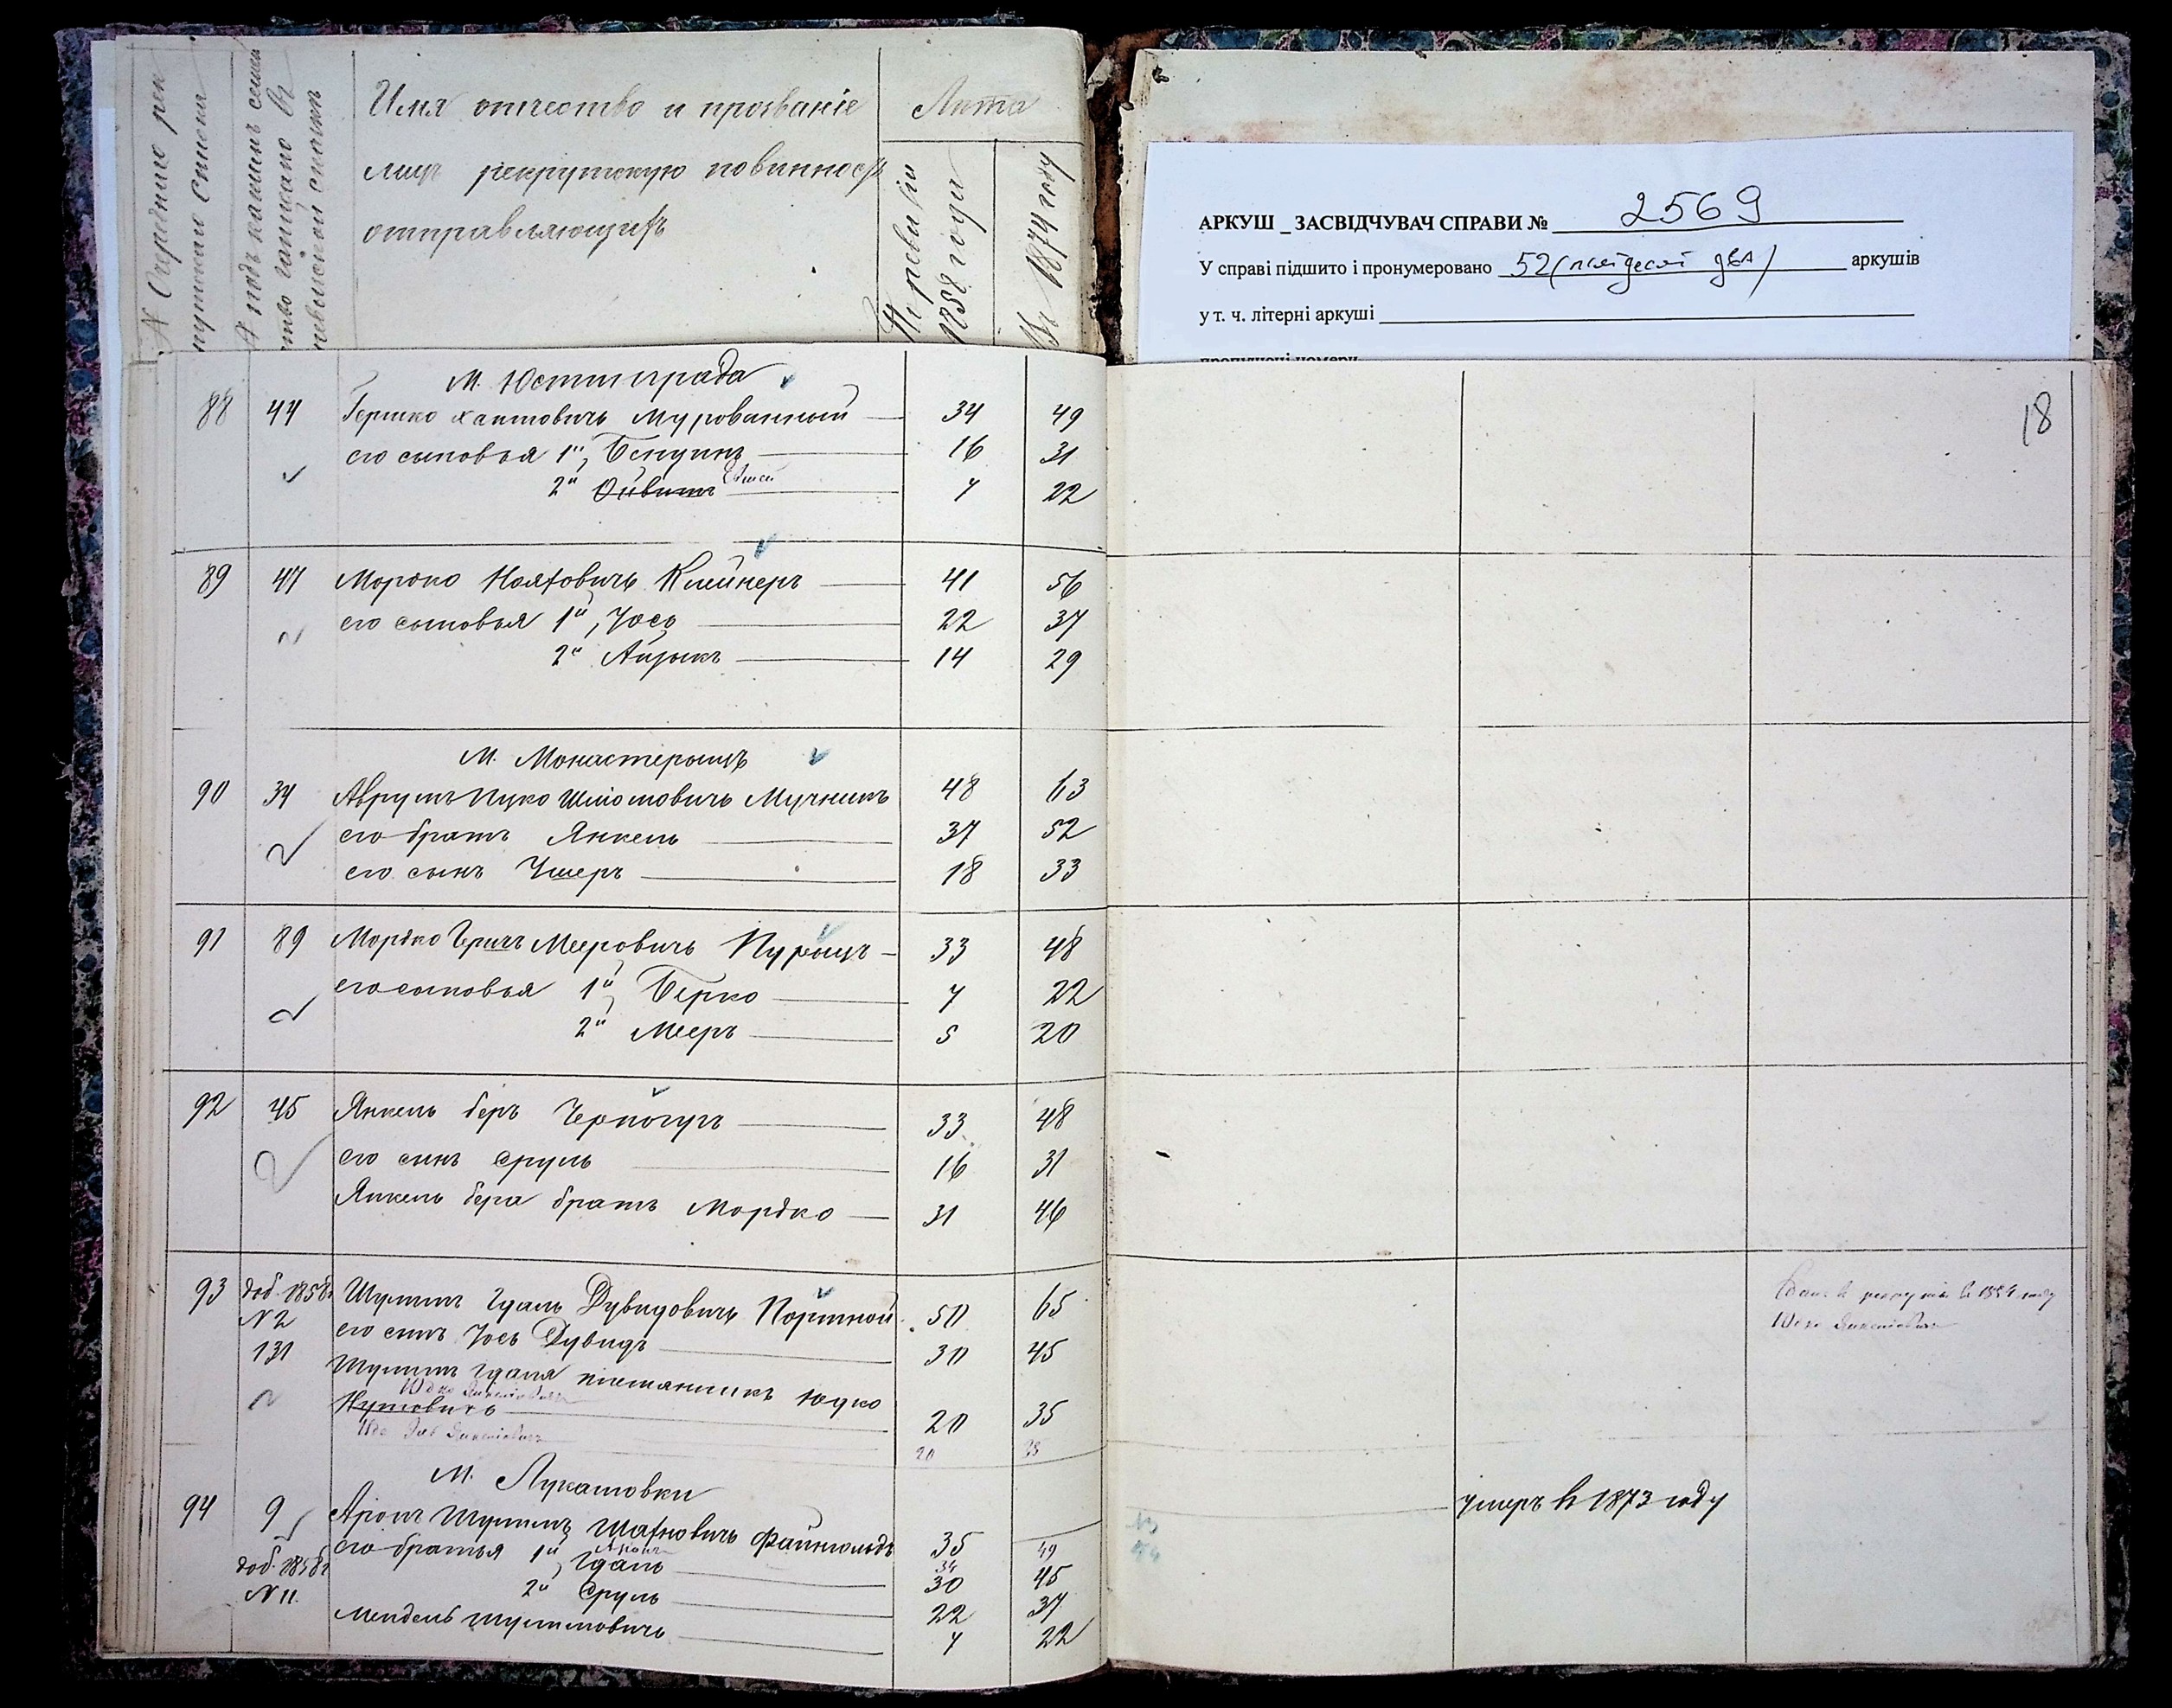 N Очередного рек
рутскаго списка
N подъ какимъ семей
ство записано въ
ревизской сказкѣ
Имя отчество и прозваніе
лицъ рекрутскую повинность
отправляющихъ
Лѣта
По ревизіи
1858 года
Въ 1874 году
АРКУШ _ ЗАСВІДЧУВАЧ СПРАВИ № 2569
У справі підшито і пронумеровано 52 (пятдесят два) аркушів
у т. ч. літерні аркуші
пропущені номери
18
М. Юстинграда
88 44 Гершко Хаимовичъ Мурованный 34 49
его сыновья 1й Бенционъ 16 31
2й 7 22
89 47 Мордко Нояховичъ Клейнеръ 41 56
его сыновья 1й Іось 22 37
2й Айзыкъ 14 29
М. Монастерыщъ
90 34 Аврумъ Ицко Шліомовичъ Мучникъ 48 63
его братъ Янкель 37 52
его сынъ Ушеръ 18 33
91 89 Мордко Гершъ Мееровичъ Пурыцъ 33 48
его сыновья 1й Берко 7 22
2й Мееръ 5 20
92 45 Янкель Беръ 33 48
его сынъ Сруль 16 31
Янкель Бера братъ Мордко 31 46
93 доб. 1858г. Шулимъ Гдаль Дувидовичъ Портной 50 65
N 2 его сынъ Іось Дувидъ 30 45
131 Шулимъ Гдаля племянникъ Юдко
Юдко Янкеліовичъ
Нутовичъ 20 35
Янкеліовичъ 20
въ рекруты въ 1854 году
Юдко Янкеліовичъ
М. Лукашовки
94 9 Аронъ Шулимъ Шахновичъ Файнгольдъ 35 49
умеръ въ 1873 году
его братья 1й Гдаль 30 45
доб. 1858г. 2й Сруль 22 37
N 11. Мендель Шулимовичъ 7 22